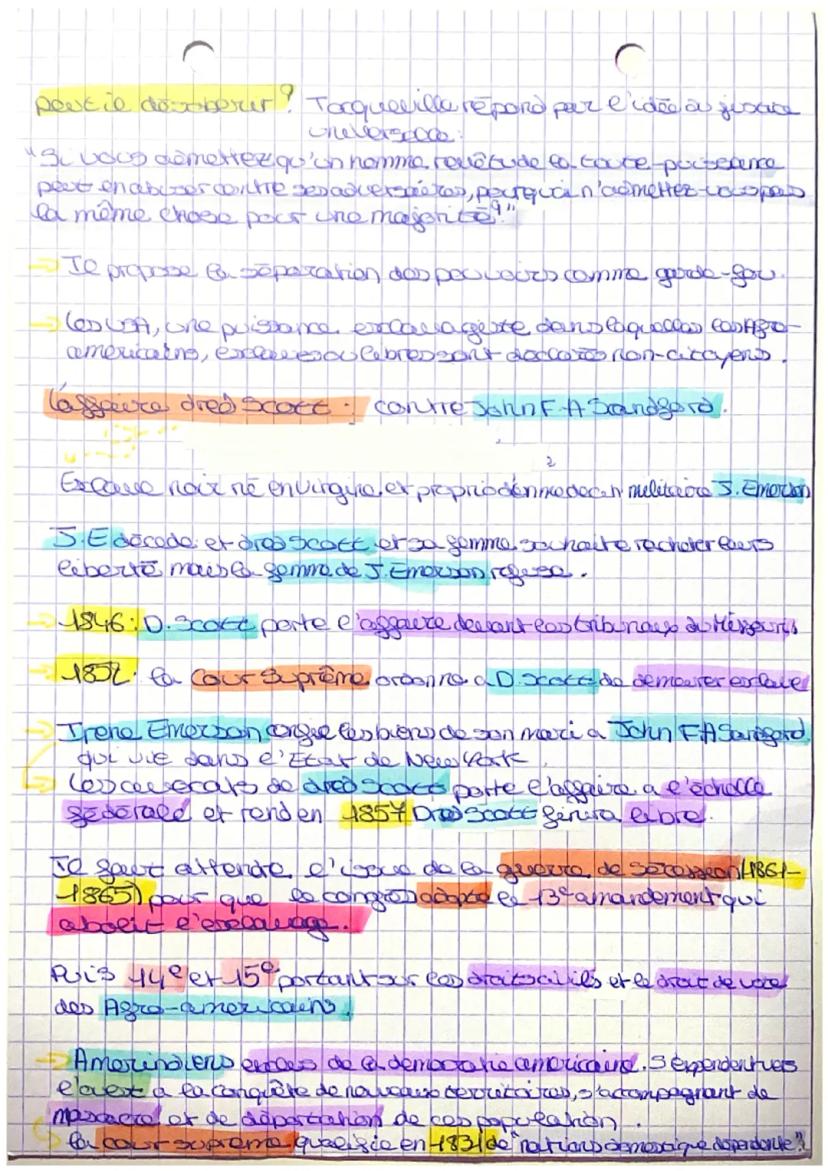 peut il désobéir? Tocqueville répond par l'idée de justice
universelle:
"Si vous admettez qu'un homme revêtu de la toute-puissance
peut en abuser contre ses adversaires, pourquoi n'admettez-vous pas
la même chose pour une majorité?"
→ Il propose la séparation des pouvoirs comme garde-fou.
→ Les USA, une puissance esclavagiste dans laquelles les Afro-
américains, esclaves ou libres sont déclarés non-citoyens.
L'affaire dred Scott: contre John F.A Sandford.
Esclave noir né en Virginie, et propriété d'un militaire J. Emerson
J.E décède et dred Scott et sa femme souhaite racheter leurs
liberté mais la femme de J. Emerson refuse.
→ 1846: D. Scott porte l'affaire devant les tribunaux du Missouri
→ 1852: la Cour Suprême ordonne a D. Scott de demeurer esclave
→ Irene Emerson confie les biens de son mari a John F.A Sandford
qui vie dans l'Etat de New York
→ Les avocats de dred Scott porte l'affaire a l'échelle
fédérale et rend en 1857 Dred Scott libre.
Il faut attendre l'issue de la guerre de sécession (1861-
1865) pour que le congrès adopte le 13e amandement qui
abolit l'esclavage.
Puis 14e et 15e portant sur les droits civils et le droit de vote
des Afro-américains.
→ Amérindiens exclus de la démocratie américaine. S'étendent vers
l'ouest a la conquête de nouveaux territoires, s'accompagnant de
massacre et de déportation de ces population.
la cour suprême qualifie en 1831 de "nations domestique dépendante".